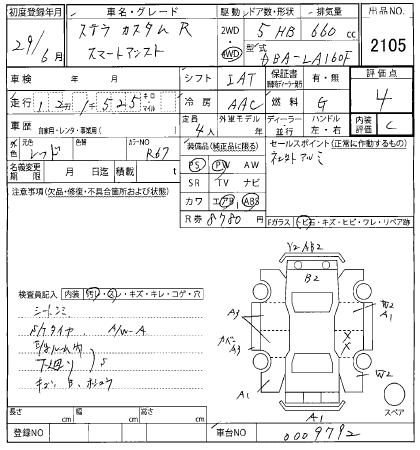 初度登録年月
車名・グレード
駆動
ドア数・形状
排気量
出品NO.
29年
6月
ステラ カスタム R
スマートアシスト
2WD
4WD
5 HB
660 cc
型式
DBA-LA160F
2105
車検
年 月
シフト
IAT
保証書
有・無
評価点
4
走行
キロ
マイル
冷房
AAC
燃料
G
車歴
自家用・レンタ・事業用( )
定員
4人
外車モデル
年
ディーラー
並行
ハンドル
左・右
内装
評価
C
外色
元色
レッド
色替
カラーNO
R67
装備品(純正品に限る)
セールスポイント(正常に作動するもの)
社外アルミ
名義変更
期限
月 日迄
積載
t
PS PW AW
SR TV ナビ
カワ エアB ABS
R券 8780 円
注意事項(欠品・修復・不具合箇所および状態)
Fガラス(トビ石・キズ・ヒビ・ワレ・リペア跡)
検査員記入
内装
汚レ・スレ・キズ・キレ・コゲ・穴
シートシミ
S/Tタイヤ A/W-A
下廻り S
Y2 AB2
B2
A3
A3
A1
W2
A1
X
X
W2
A1
スペア
長さ cm
幅 cm
高さ cm
登録NO
車台NO
0009792